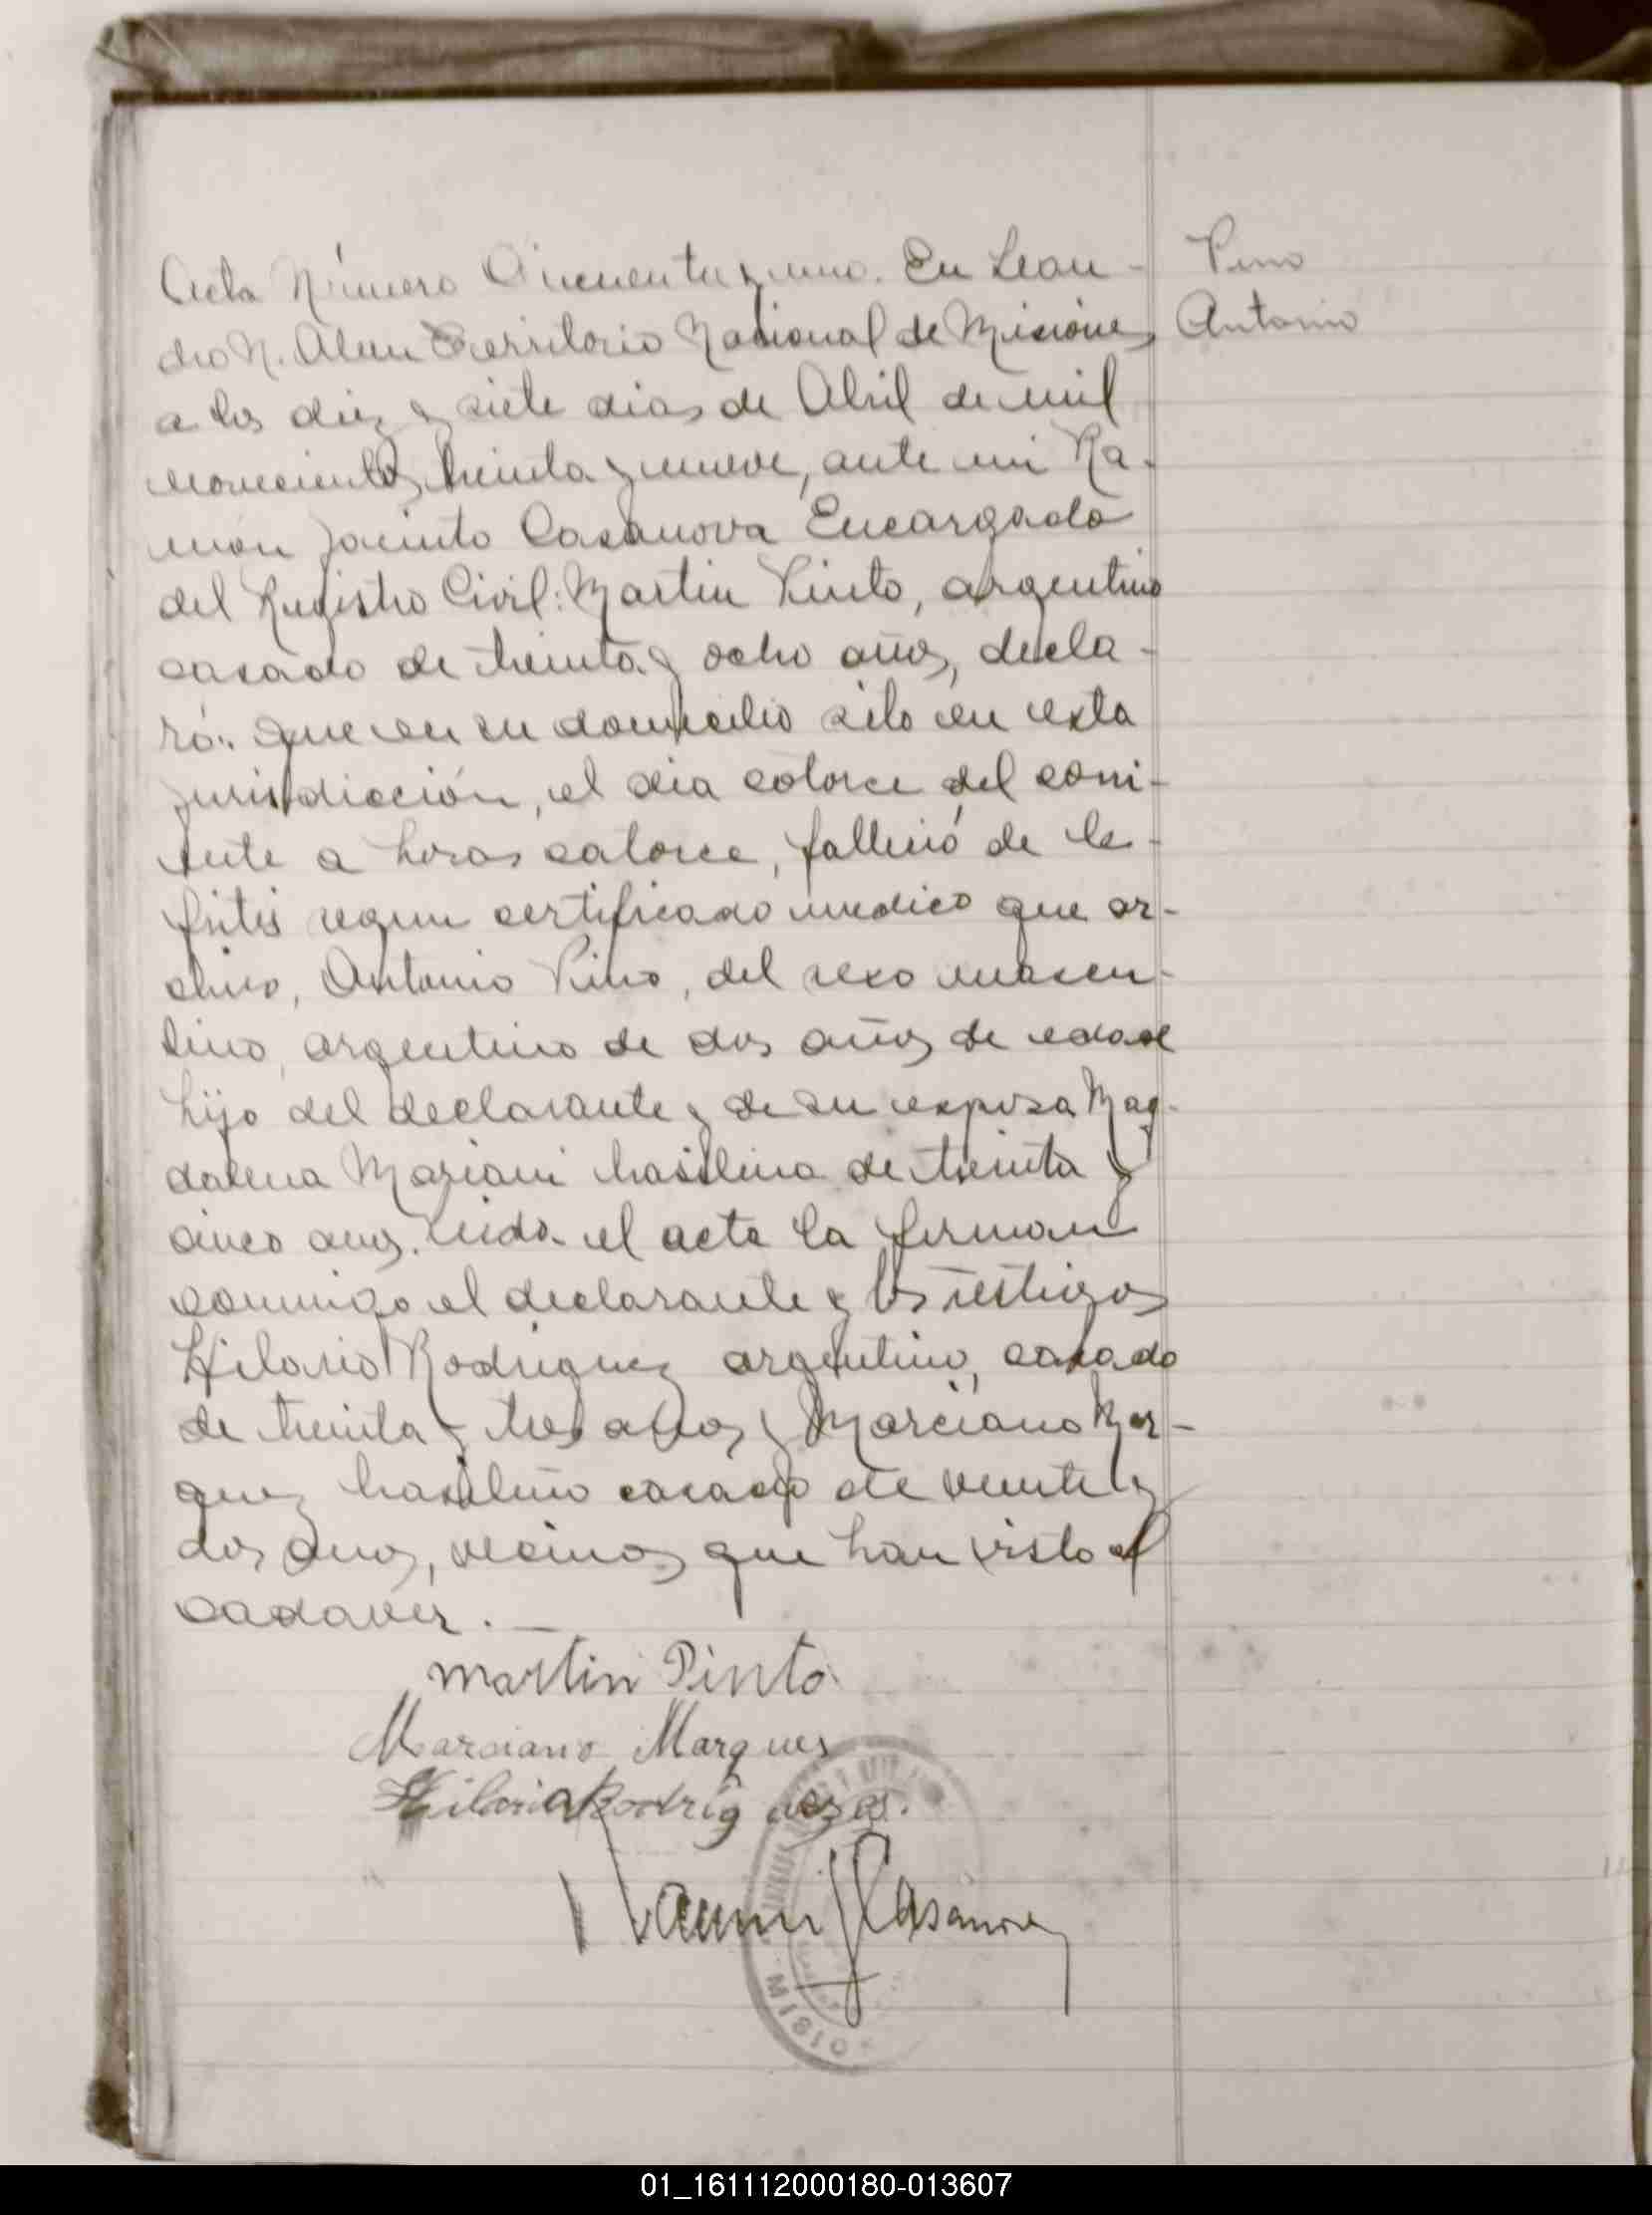 Acta Número Cincuenta y uno. En Lean-
dro N. Alem Territorio Nacional de Misiones
a los diez y siete dias de Abril de mil
novecientos treinta y nueve, ante mi Ra-
món Jacinto Casanova Encargado
del Registro Civil: Martin Pinto, argentino
casado de treinta y ocho años, decla-
ró: que en su domicilio sito en esta
jurisdicción, el dia catorce del corri-
ente a horas catorce, falleció de
según certificado medico que ar-
chivo, Antonio Pino, del sexo mascu-
lino, argentino de dos años de edad
hijo del declarante y de su esposa Mag-
dalena Mariani brasilena de treinta y
cinco anos. Leida el acta la firman
conmigo el declarante y los testigos
Hilario Rodriguez argentino, casado
de treinta y tres años y Marciano Mar-
quez brasileño casado de veinte y
dos anos, vecinos que han visto el
cadaver.—
Pino
Antonio
Martin Pinto
Marciano Marques
Hilario
Ramon J Casanova
MISIO
01_161112000180-013607